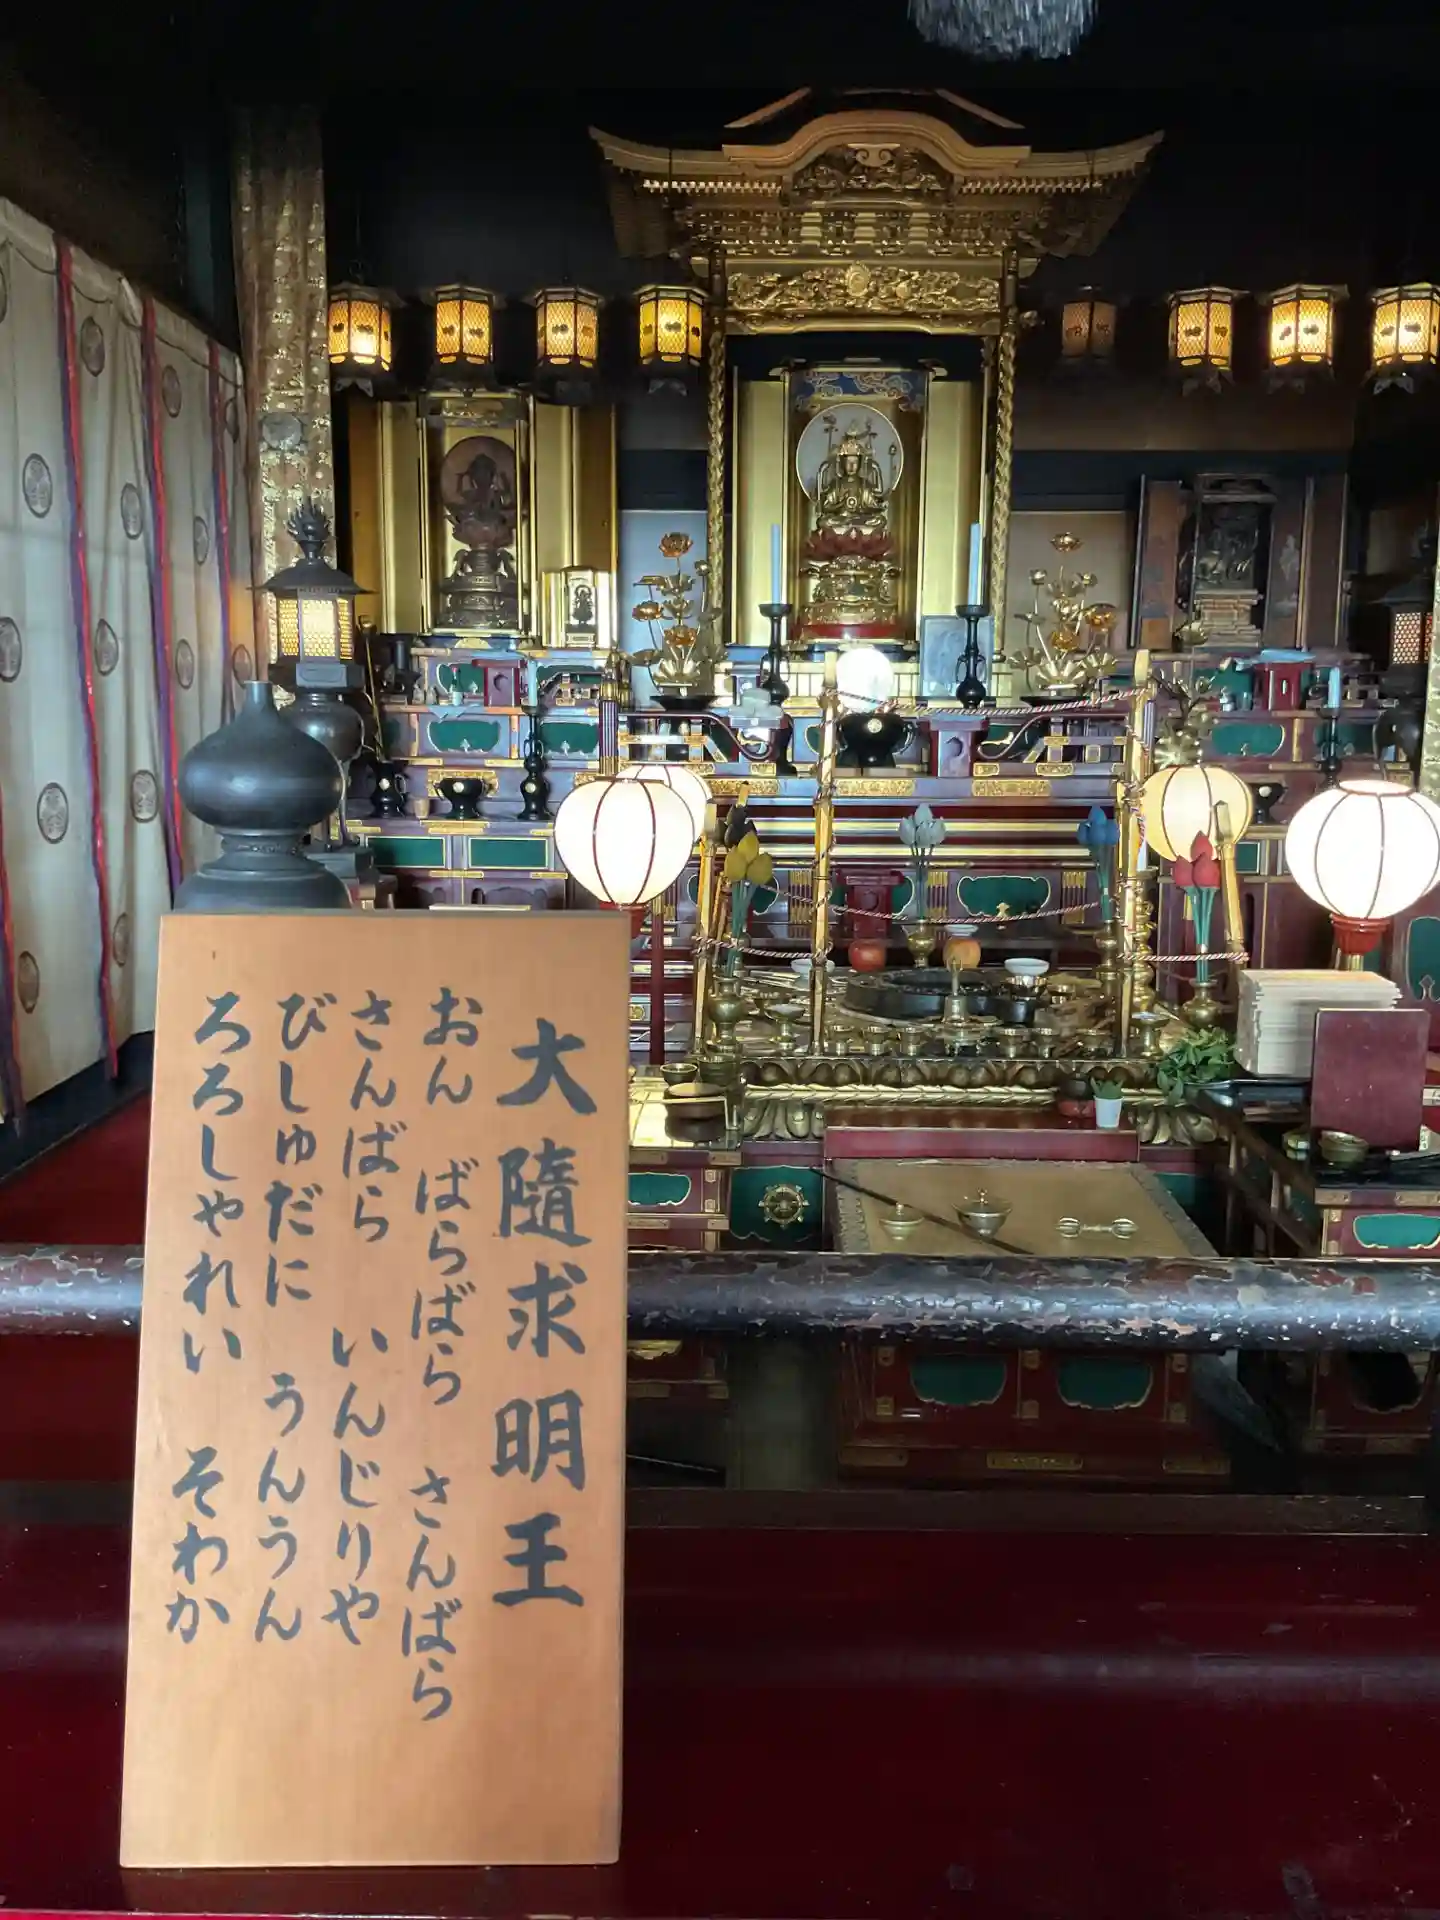 大隨求明王
おん ばらばら さんばら
さんばら いんじりや
びしゅだに うんうん
ろろしゃれい そわか